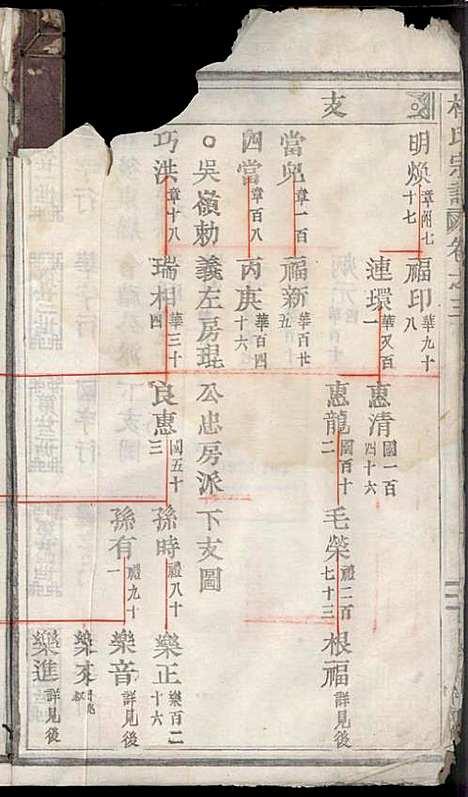 氏宗譜 卷之三
支
明煥 章附七十七
福印 華九十八
連環 華又百一
惠清 國一百四十六
惠龍 國百十二
毛榮 禮二百七十三
根福 詳見後
當兒 章一百
福新 華百廿五
四當 章百八
丙庚 華百四十六
○吳嶺勅義左房琨公忠房派下支圖
巧洪 章十八
瑞相 華三十四
良惠 國五十三
孫時 禮八十
樂正 樂百二十六
孫有 禮九十一
樂音 詳見後
樂來
樂進 詳見後